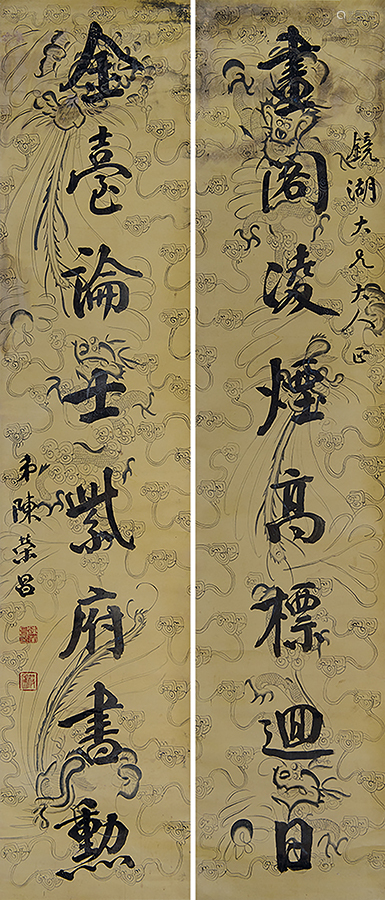 鏡湖大兄大人正
畫閣凌煙高標迴日
金臺論士紫府書勳
弟陳榮昌